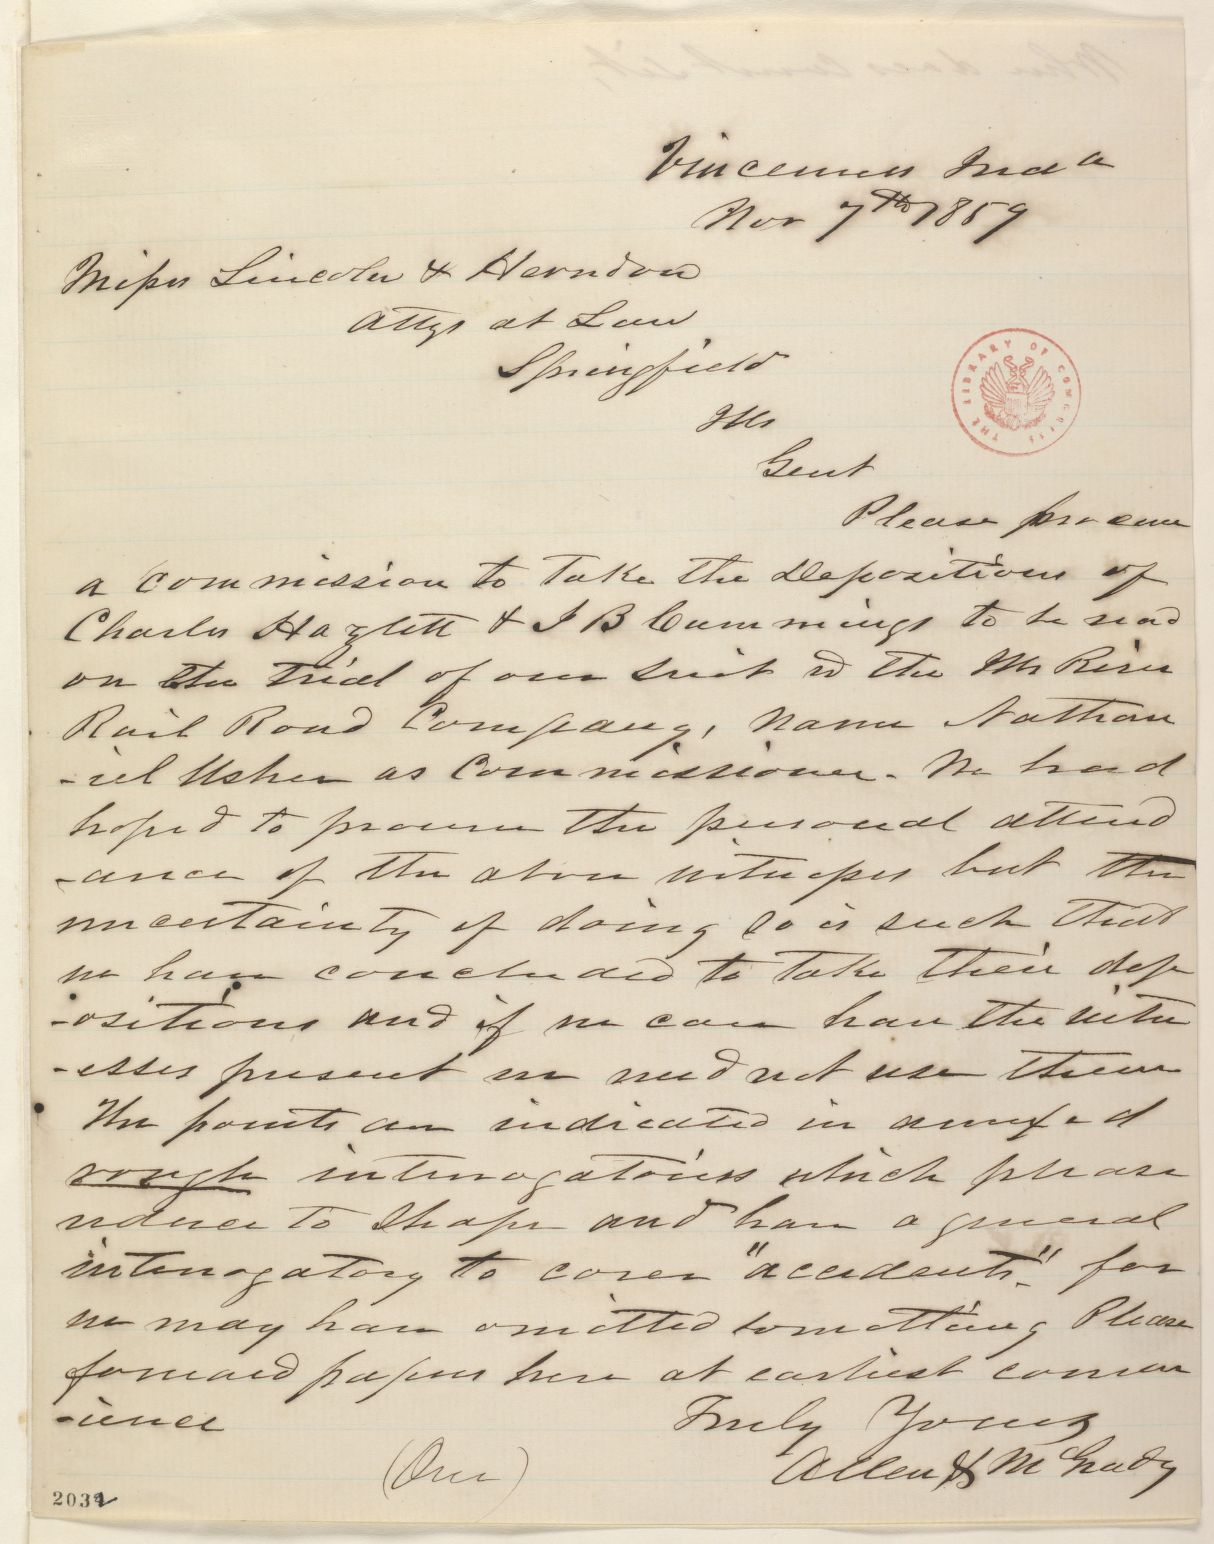 Vincennes Inda
Nov 7th 1859
Messrs Lincoln & Herndon
Attys at Law
Springfield
Ills
Gent
Please procure
a commission to take the depositions of
Charles Hazlett & J B Cummings to be read
on the trial of our suit vs the Ills River
Rail Road Company, name Nathan
-iel Usher as Commissioner. We had
hoped to procure the personal attend
-ance of the above witnesses but the
uncertainty of doing so is such that
we have concluded to take their dep
-ositions and if we can have the witn
-esses present we need not use them
The points are indicated in annexed
rough interrogatories which please
reduce to shape and have a general
interrogatory to cover "accidents." for
we may have omitted something Please
forward papers here at earliest conven
-ience
Truly Yours
Allen & McGrady
(Over)
THE LIBRARY OF CONGRESS